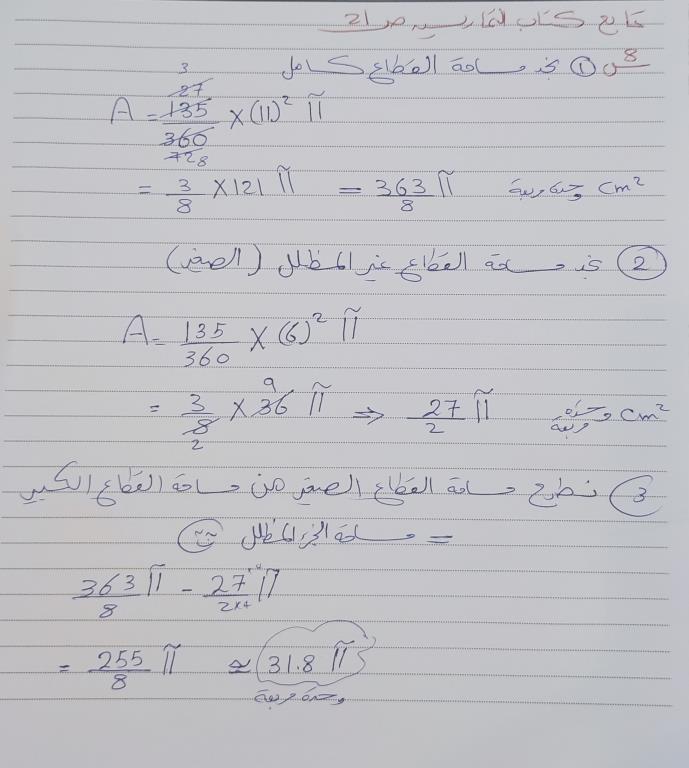 تابع كتاب التمارين ص 21
س8 ① نجد مساحة القطاع كامل
A = 135/360 × (11)² π 3 27 72 8
= 3/8 × 121 π = 363/8 π وحدة مربعة cm²
② نجد مساحة القطاع غير المظلل (الصغير)
A = 135/360 × (6)² π
= 3/8 × 36 π ⇒ 27/2 π وحدة مربعة cm² 9 2
③ نطرح مساحة القطاع الصغير من مساحة القطاع الكبير
= مساحة الجزء المظلل
363/8 π - 27×4/2×4 π
= 255/8 π ≅ 31.8 π
وحدة مربعة